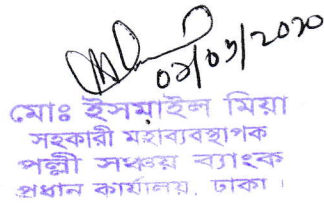 ০২/০৬/২০২০
মোঃ ইসমাইল মিয়া
সহকারী মহাব্যবস্থাপক
পল্লী সঞ্চয় ব্যাংক
প্রধান কার্যালয়, ঢাকা।